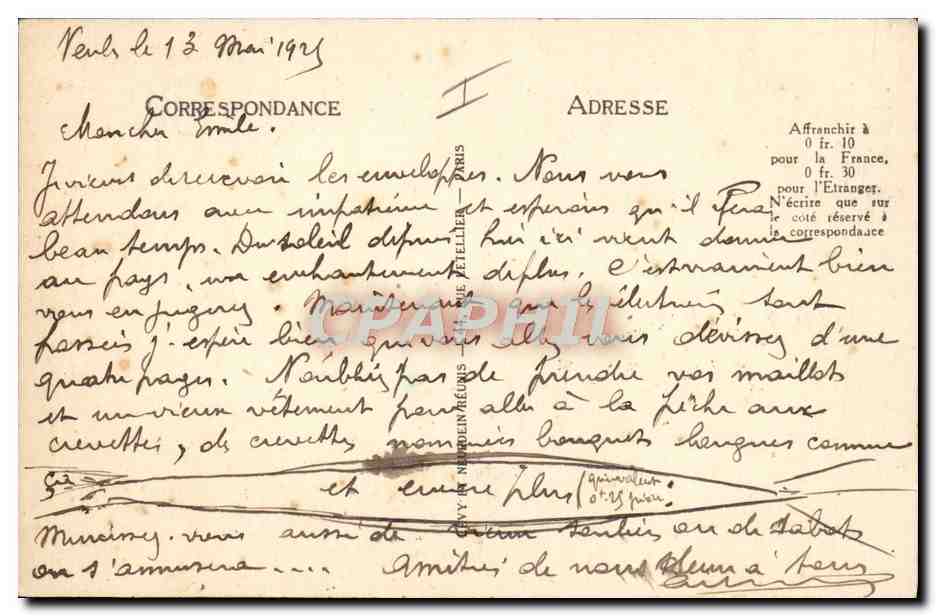 Veules le 13 Mai 1925
I
CORRESPONDANCE
ADRESSE
Affranchir à
0 fr. 10
pour la France,
0 fr. 30
pour l'Etranger.
N'écrire que sur
le côté réservé à
la correspondance
Mon cher Emile.
Je viens de recevoir les enveloppes. Nous vous
attendons avec impatience et espérons qu'il fera
beau temps. Du soleil depuis hier ici vient donner
au pays, un enchantement de plus. C'est vraiment bien
vous en jugerez. Maintenant que les élections sont
passées j'espère bien que vous allez vous dévisser d'une
quatre pages. N'oubliez pas de prendre vos maillots
et un vieux vêtement pour aller à la pêche aux
crevettes, des crevettes nommées bouquets longues comme
ça
et encore plus (qui valent
0f.25 pièce.
Munissez-vous aussi de vieux souliers ou de sabots
on s'amusera .... Amitiés de nous deux à tous
LEVY ET NEURDEIN RÉUNIS — 44, RUE LETELLIER — PARIS
CPAPHIL